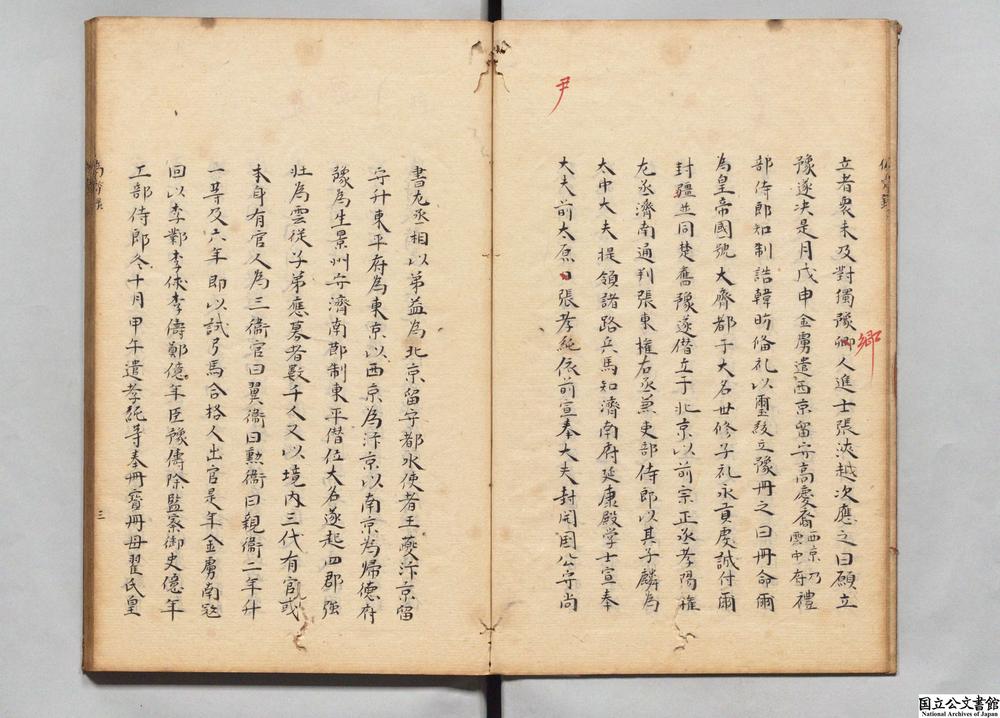 立者衆未及對獨豫卿人進士張浹越次應之曰願立
鄉
豫遂决是月戊申金虜遣西京留守高慶裔西京乃雲中府禮
部侍郎知制誥韓昉俻礼以璽綬立豫冊之曰冊命爾
為皇帝國號大齊都于大名世修子礼永貢虔誠付爾
封疆並同楚舊豫遂僣立于北京以前宗正丞李陽權
左丞濟南通判張東權右丞兼吏部侍郎以其子麟為
太中大夫提領諸路兵馬知濟南府延康殿学士宣奉
大夫前太原曰張孝純依前宣奉大夫封開国公守尚
尹
書左丞相以弟益為北京留守都水使者王夔汴京留
守升東平府為東京以西京為汴京以南京為歸德府
豫為生景州守濟南節制東平僣位大名遂起四郡强
壯為雲従子弟應募者数千人又以境内三代有官或
本身有官人為三衞官曰翼衞曰勲衞曰親衞二年升
一等及六年即以試弓馬合格人出官是年金虜南冦
回以李鄴李俅李儔鄭億年臣豫儔除監察御史億年
工部侍郎冬十月甲午遣孝純等奉冊寳冊母翟氏皇
三
国立公文書館
National Archives of Japan